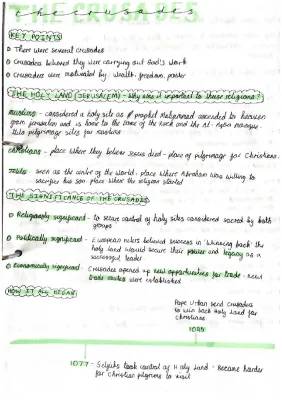 THE CRUSADES
the crusades
KEY POINTS
There were several crusades
Crusaders believed they were carrying out God's work
Crusaders were motivated by wealth, freedom, power
THE HOLY LAND (JERUSALEM) - Why was it important to these religions?
muslims - considered a holy site as prophet Muhammad ascended to heaven
from jerusalem and is home to the Dome of the Rock and the Al-Aqsa mosque -
this pilgrimage sites for muslims
christians - place where they believe Jesus died - place of pilgrimage for Christians.
Jews seen as the centre of the world; place where Abraham was willing to
sacrifice his son place where the religion started
THE SIGNIFICANCE OF THE CRUSADES
Religiously significant - to secure control of holy sites considered sacred by both
groups
Politically significant - European rulers believed success in 'winning back' the
holy land would secure their power and legacy as a
successful leader
Economically significant Crusades opened up new opportunities for trade - new
trade routes were established
HOW IT ALL BEGAN
Pope Urban send crusaders
to win back Holy Land for
christians
1095
1077 - Seljuks took control of Holy Land - became harder
for christian pilgrims to visit